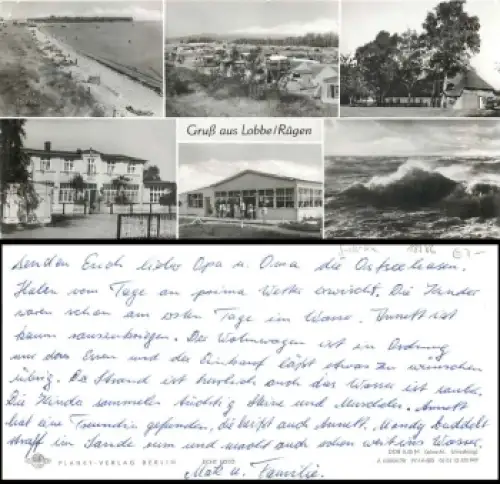 Gruß aus Lobbe/Rügen
senden Euch lieber Opa u. Oma die Ostseehasen.
Haben vom Tage an prima Wetter erwischt. Die Kinder
waren schon am ersten Tage im Wasser. Annett ist
kaum rauszukriegen. Der Wohnwagen ist in Ordnung
nur das Essen und der Einkauf läßt etwas zu wünschen
übrig. Der Strand ist herrlich auch das Wasser ist sauber.
Die Kinder sammeln tüchtig Steine und Muscheln. Annett
hat eine Freundin gefunden, die heißt auch Annett. Mandy buddelt
straff im Sande rum und macht auch schon weit ins Wasser.
PLANET-VERLAG BERLIN
ECHT FOTO
u. Familie.